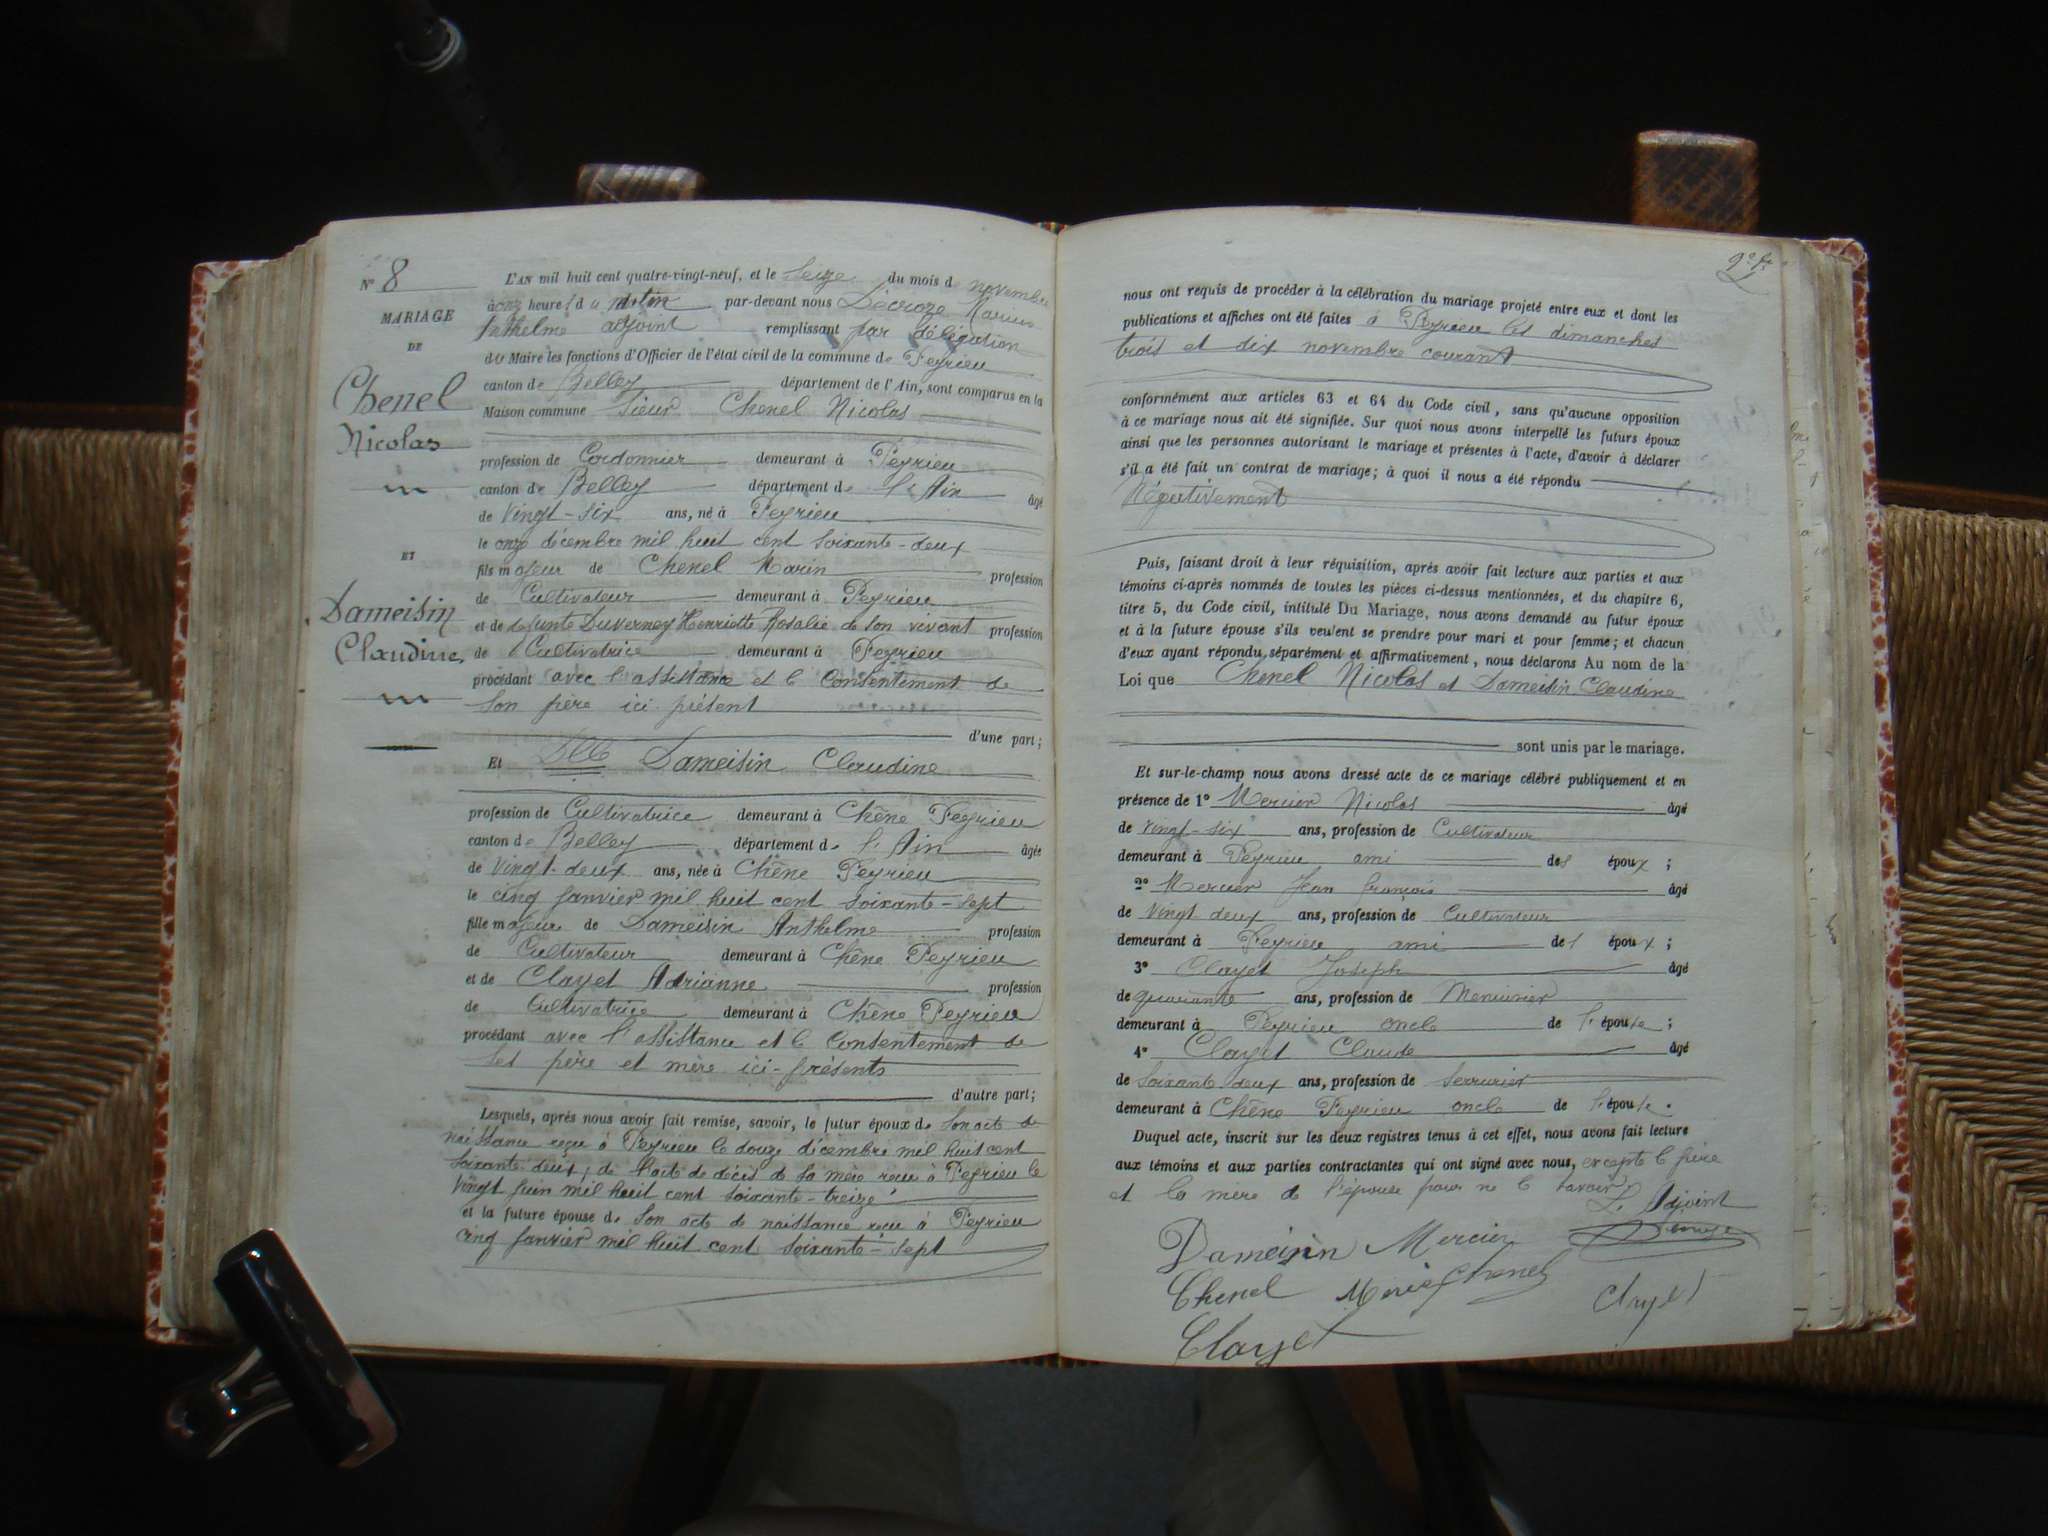 N° 8
MARIAGE
DE
Chenel
Nicolas
ET
Dameisin
Claudine
L'AN mil huit cent quatre-vingt-neuf, et le seize du mois de novembre
à onze heures du matin par-devant nous Décroze Marius
Anthelme adjoint remplissant par délégation
du Maire les fonctions d'Officier de l'état civil de la commune de Peyrieu
canton de Belley département de l'Ain, sont comparus en la
Maison commune Sieur Chenel Nicolas
profession de Cordonnier demeurant à Peyrieu
canton de Belley département de l'Ain âgé
de vingt-six ans, né à Peyrieu
le onze décembre mil huit cent soixante-deux
fils majeur de Chenel Marin profession
de Cultivateur demeurant à Peyrieu
et de defunte Duverney Henriette Rosalie de son vivant profession
de Cultivatrice demeurant à Peyrieu
procédant avec l'assistance et le consentement de
son père ici présent
d'une part;
Et Dlle Dameisin Claudine
profession de Cultivatrice demeurant à Chêne Peyrieu
canton de Belley département de l'Ain âgée
de vingt-deux ans, née à Chêne Peyrieu
le cinq janvier mil huit cent soixante-sept
fille majeure de Dameisin Anthelme profession
de Cultivateur demeurant à Chêne Peyrieu
et de Clayet Adrianne profession
de Cultivatrice demeurant à Chêne Peyrieu
procédant avec l'assistance et le consentement de
ses père et mère ici-présents
d'autre part;
Lesquels, après nous avoir fait remise, savoir, le futur époux de son acte de
naissance reçu à Peyrieu le douze décembre mil huit cent
soixante-deux; de l'acte de décès de sa mère reçu à Peyrieu le
vingt juin mil huit cent soixante-treize
et la future épouse de son acte de naissance reçu à Peyrieu
cinq janvier mil huit cent soixante-sept
nous ont requis de procéder à la célébration du mariage projeté entre eux et dont les
publications et affiches ont été faites à Peyrieu les dimanches
trois et dix novembre courant
conformément aux articles 63 et 64 du Code civil, sans qu'aucune opposition
à ce mariage nous ait été signifiée. Sur quoi nous avons interpellé les futurs époux
ainsi que les personnes autorisant le mariage et présentes à l'acte, d'avoir à déclarer
s'il a été fait un contrat de mariage; à quoi il nous a été répondu
Négativement
Puis, faisant droit à leur réquisition, après avoir fait lecture aux parties et aux
témoins ci-après nommés de toutes les pièces ci-dessus mentionnées, et du chapitre 6,
titre 5, du Code civil, intitulé Du Mariage, nous avons demandé au futur époux
et à la future épouse s'ils veulent se prendre pour mari et pour femme; et chacun
d'eux ayant répondu séparément et affirmativement, nous déclarons Au nom de la
Loi que Chenel Nicolas et Dameisin Claudine
sont unis par le mariage.
Et sur-le-champ nous avons dressé acte de ce mariage célébré publiquement et en
présence de 1° Mercier Nicolas âgé
de vingt-six ans, profession de Cultivateur
demeurant à Peyrieu ami des époux;
2° Mercier Jean françois âgé
de vingt deux ans, profession de Cultivateur
demeurant à Peyrieu ami des époux;
3° Clayet Joseph âgé
de quarante ans, profession de Menuisier
demeurant à Peyrieu oncle de l'épouse;
4° Clayet Claude âgé
de soixante-deux ans, profession de serrurier
demeurant à Chêne Peyrieu oncle de l'épouse.
Duquel acte, inscrit sur les deux registres tenus à cet effet, nous avons fait lecture
aux témoins et aux parties contractantes qui ont signé avec nous, excepté le père
et la mère de l'épouse pour ne le savoir
L'Adjoint
Dameisin Mercier
Chenel Mercier Chenel Clayet
Clayet